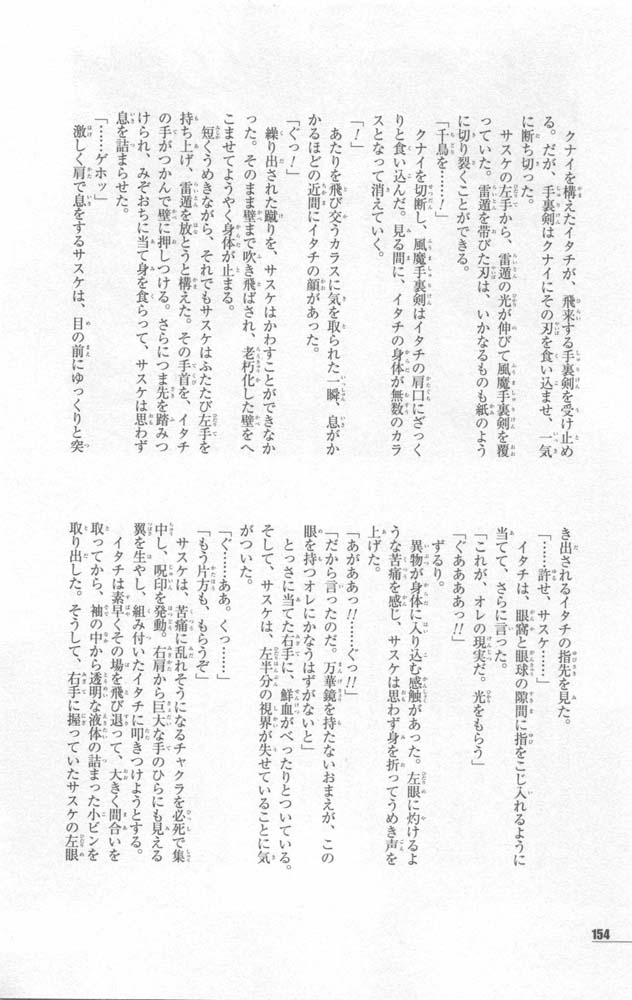 クナイを構えたイタチが、飛来する手裏剣を受け止め
る。だが、手裏剣はクナイにその刃を食い込ませ、一気
に断ち切った。
サスケの左手から、雷遁の光が伸びて風魔手裏剣を覆
っていた。雷遁を帯びた刃は、いかなるものも紙のよう
に切り裂くことができる。
「千鳥を……！」
クナイを切断し、風魔手裏剣はイタチの肩口にざっく
りと食い込んだ。見る間に、イタチの身体が無数のカラ
スとなって消えていく。
「！」
あたりを飛び交うカラスに気を取られた一瞬、息がか
かるほどの近間にイタチの顔があった。
「ぐっ！」
繰り出された蹴りを、サスケはかわすことができなか
った。そのまま壁まで吹き飛ばされ、老朽化した壁をへ
こませてようやく身体が止まる。
短くうめきながら、それでもサスケはふたたび左手を
持ち上げ、雷遁を放とうと構えた。その手首を、イタチ
の手がつかんで壁に押しつける。さらにつま先を踏みつ
けられ、みぞおちに当て身を食らって、サスケは思わず
息を詰まらせた。
「……ゲホッ」
激しく肩で息をするサスケは、目の前にゆっくりと突
き出されるイタチの指先を見た。
「……許せ、サスケ……」
イタチは、眼窩と眼球の隙間に指をこじ入れるように
当てて、さらに言った。
「これが、オレの現実だ。光をもらう」
「ぐああああっ!!」
ずるり。
異物が身体に入り込む感触があった。左眼に灼けるよ
うな苦痛を感じ、サスケは思わず身を折ってうめき声を
上げた。
「あがああっ!!……ぐっ!!」
「だから言ったのだ。万華鏡を持たないおまえが、この
眼を持つオレにかなうはずがないと」
とっさに当てた右手に、鮮血がべったりとついている。
そして、サスケは、左半分の視界が失せていることに気
がついた。
「ぐ……ああ。くっ……」
「もう片方も、もらうぞ」
サスケは、苦痛に乱れそうになるチャクラを必死で集
中し、呪印を発動。右肩から巨大な手のひらにも見える
翼を生やし、組み付いたイタチに叩きつけようとする。
イタチは素早くその場を飛び退って、大きく間合いを
取ってから、袖の中から透明な液体の詰まった小ビンを
取り出した。そうして、右手に握っていたサスケの左眼
154